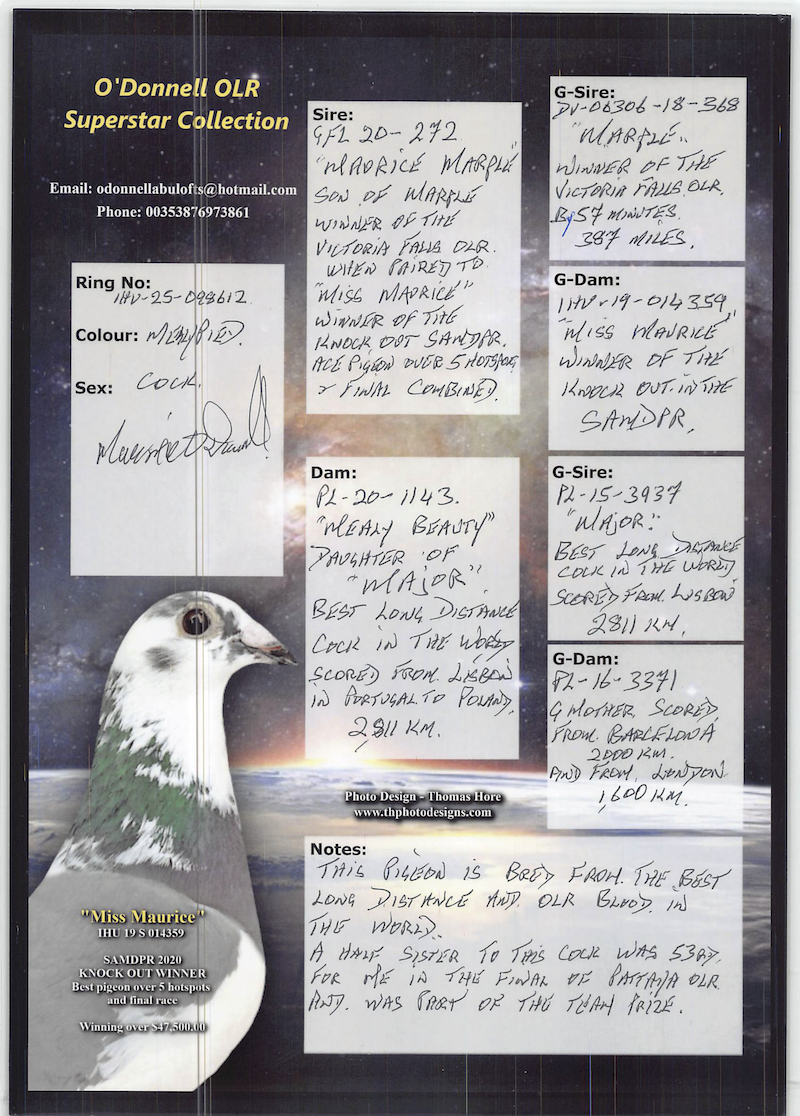 O'Donnell OLR
Superstar Collection
Email: odonnellabulofts@hotmail.com
Phone: 00353876973861
Ring No:
IHU-25-098612
Colour: MEALY PIED.
Sex: COCK.
Sire:
GFL 20-272
"MAURICE MARPLE"
SON OF MARPLE
WINNER OF THE
VICTORIA FALLS OLR.
WHEN PAIRED TO
"MISS MAURICE"
WINNER OF THE
KNOCK OUT SAMDPR.
ACE PIGEON OVER 5 HOTSPOTS
& FINAL COMBINED.
Dam:
PL-20-1143.
"MEALY BEAUTY"
DAUGHTER OF
"MAJOR".
BEST LONG DISTANCE
COCK IN THE WORLD
SCORED FROM LISBON
IN PORTUGAL TO POLAND.
2,811 KM.
G-Sire:
DV-06306-18-368
"MARPLE"
WINNER OF THE
VICTORIA FALLS OLR.
By 57 MINUTES.
387 MILES.
G-Dam:
IHU-19-014359
"MISS MAURICE"
WINNER OF THE
KNOCK OUT IN THE
SAMDPR.
G-Sire:
PL-15-3937
"MAJOR".
BEST LONG DISTANCE
COCK IN THE WORLD
SCORED FROM LISBON
2811 KM.
G-Dam:
PL-16-3371
G MOTHER SCORED
FROM BARCELONA
2000 KM.
AND FROM LONDON
1,600 KM.
Photo Design - Thomas Hore
www.thphotodesigns.com
Notes:
THIS PIGEON IS BRED FROM THE BEST
LONG DISTANCE AND OLR BLOOD IN
THE WORLD.
A HALF SISTER TO THIS COCK WAS 53RD
FOR ME IN THE FINAL OF PATTAYA OLR
AND WAS PART OF THE TEAM PRIZE.
"Miss Maurice"
IHU 19 S 014359
SAMDPR 2020
KNOCK OUT WINNER
Best pigeon over 5 hotspots
and final race
Winning over $47,500.00